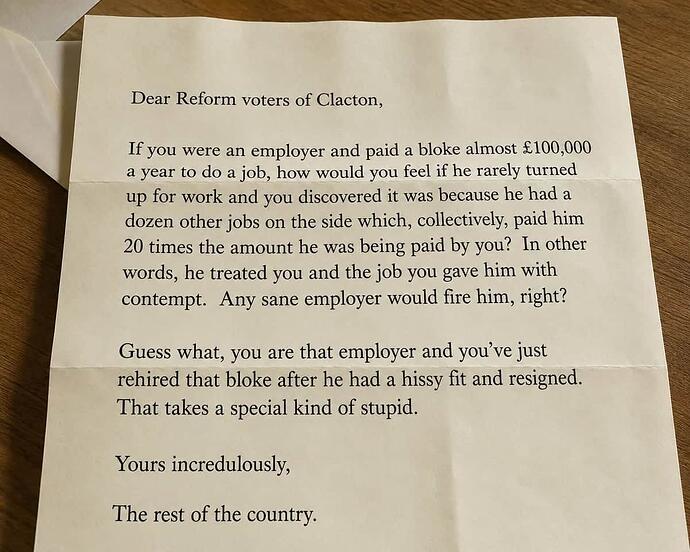 Dear Reform voters of Clacton,
If you were an employer and paid a bloke almost £100,000
a year to do a job, how would you feel if he rarely turned
up for work and you discovered it was because he had a
dozen other jobs on the side which, collectively, paid him
20 times the amount he was being paid by you?  In other
words, he treated you and the job you gave him with
contempt.  Any sane employer would fire him, right?
Guess what, you are that employer and you've just
rehired that bloke after he had a hissy fit and resigned.
That takes a special kind of stupid.
Yours incredulously,
The rest of the country.